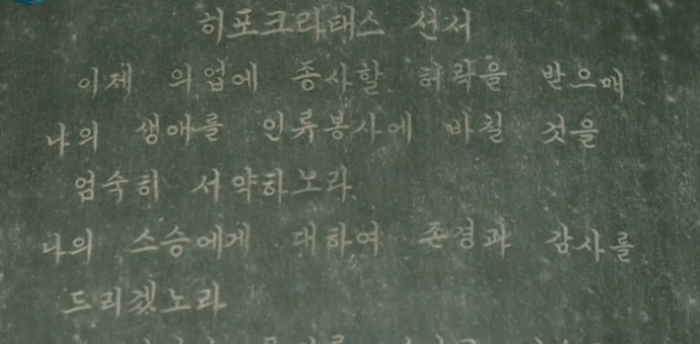 히포크라태스 선서
이제 의업에 종사할 허락을 받으매
나의 생애를 인류봉사에 바칠 것을
엄숙히 서약하노라
나의 스승에게 대하여 존경과 감사를
드리겠노라